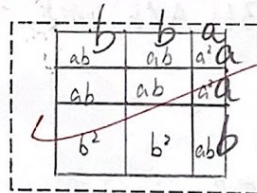 b b a
ab ab a² a
ab ab a² a
b² b² ab b